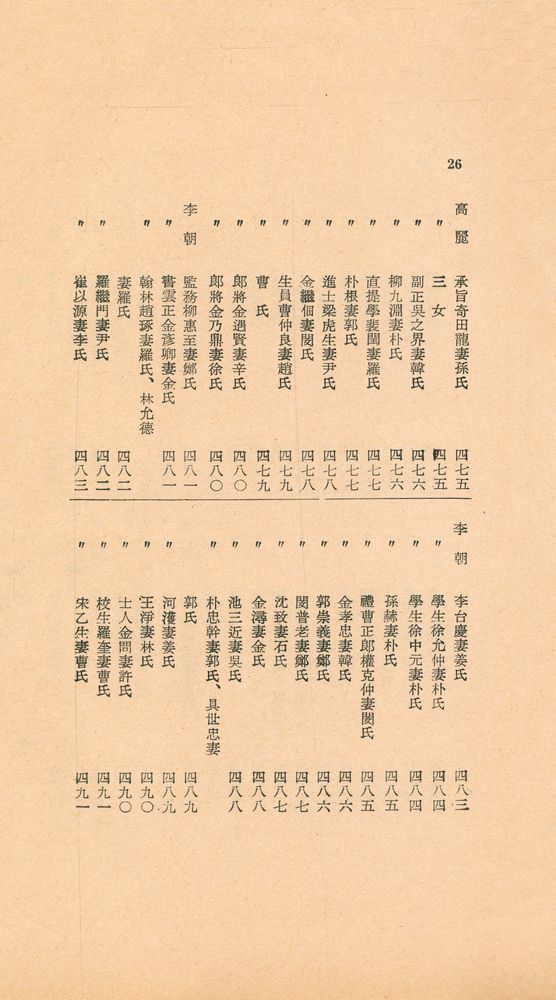 26
高麗　承旨奇田龍妻孫氏　四七五
〃　三女　四七五
〃　副正吳之界妻韓氏　四七六
〃　柳九淵妻朴氏　四七六
〃　直提學裴閨妻羅氏　四七七
〃　朴根妻郭氏　四七七
〃　進士梁虎生妻尹氏　四七八
〃　金繼佃妻閔氏　四七八
〃　生員曹仲良妻趙氏　四七九
〃　曹氏　四七九
〃　郎將金遇賢妻辛氏　四八〇
〃　郎將金乃鼎妻徐氏　四八〇
李朝　監務柳惠至妻鄭氏　四八一
〃　書雲正金彥卿妻金氏　四八一
〃　翰林趙琢妻羅氏、林允德
妻羅氏　四八二
〃　羅繼門妻尹氏　四八二
〃　崔以源妻李氏　四八三
李朝　李台慶妻姜氏　四八三
〃　學生徐允仲妻朴氏　四八四
〃　學生徐中元妻朴氏　四八四
〃　孫赫妻朴氏　四八五
〃　禮曹正郎權克仲妻閔氏　四八五
〃　金孝忠妻韓氏　四八六
〃　郭崇義妻鄭氏　四八六
〃　閔普老妻鄭氏　四八七
〃　沈致妻石氏　四八七
〃　金潯妻金氏　四八八
〃　池三近妻吳氏　四八八
〃　朴忠幹妻郭氏、具世忠妻
郭氏　四八九
〃　河濩妻姜氏　四八九
〃　王淨妻林氏　四九〇
〃　士人金問妻許氏　四九〇
〃　校生羅奎妻曹氏　四九一
〃　宋乙生妻曹氏　四九一